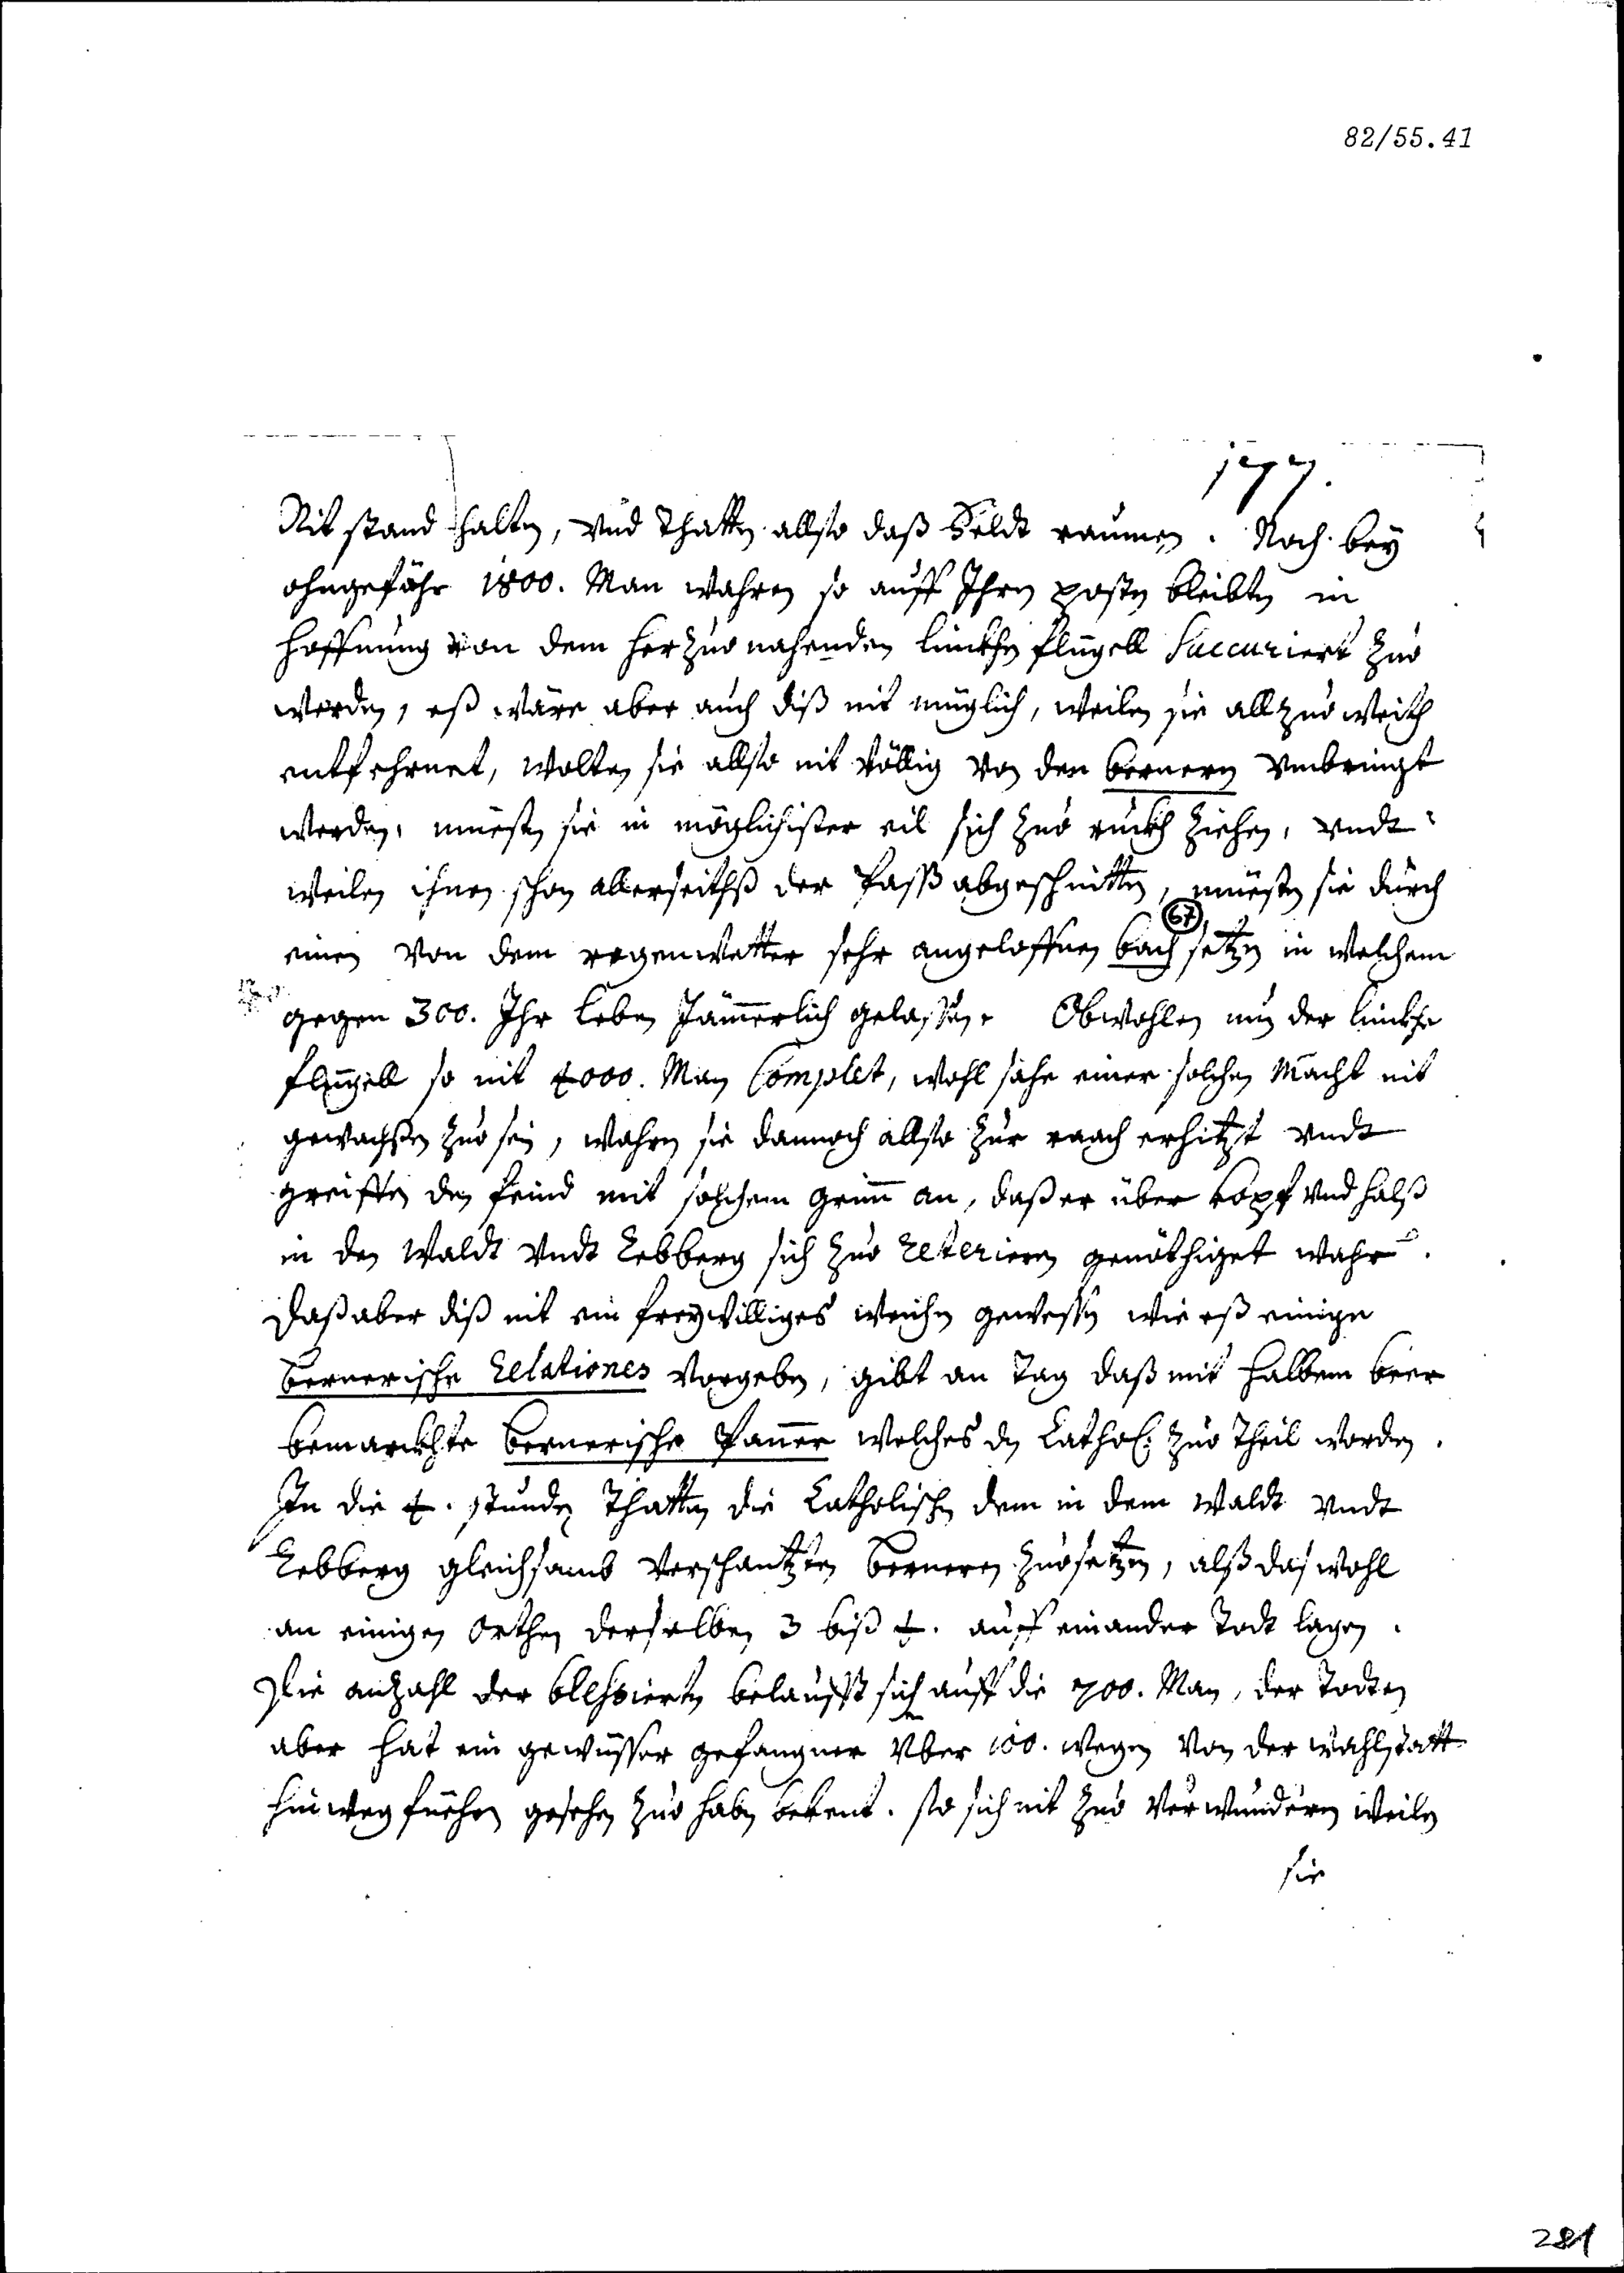 82/55.41
177.
Nit stand halten, vnd thatten allso daß Feldt raumen. Noch bey
ohngefähr 1800. Man wahren so auff Ihren posten bleibten in
hoffnung von dem herzuo nahenden linckhen flügell Succuriert zuo
werden, eß wäre aber auch diß nit müglich, weilen sie allzuo weith
entfehrnet, wolten sie allso nit völlig von den bernern vmbringt
werden, müesten sie in möglichister eil sich zuo ruckh ziehen, vndt
weilen ihnen schon allerseithß der Paß abgeschnitten, müesten sie durch
67
einen von dem regenwetter sehr angeloffnen bach setzen in welchem
gegen 300. Ihr leben Jämerlich gelassen. Obwohlen nun der linckhe
flügell so mit 4000. Man Complet, wohl sahe einer solchen Macht nit
gewachßen zuo sein, wahren sie dannoch allso zur raach erhitzt vndt
greiffen den feind mit solchem grim an, daß er über kopf vnd halß
in den Waldt vndt Rebberg sich zuo reterieren genöthiget wahr.
Daß aber diß nit ein freywilliges weichen gewessen wie eß einige
bernerische Relationes vorgeben, gibt an tag daß mit halbem beer
bemarckhte bernerische Paner welches den Cathol: zuo theil worden.
In die 4. stunden thatten die Catholischen dem in dem Waldt vndt
Rebberg gleichsamb verschantzten berneren zuosetzen, alß das wohl
an einigen orthen derselben 3 biß 4. auff einander todt lagen.
Die anzahl der blessierten belaufft sich auff die 700. Man, der todten
aber hat ein gewüsser gefangner über 100. wegen von der wahlstatt
hinweg füehren gesehen zuo haben bekent. so sich nit zuo verwundern weilen
sie
281